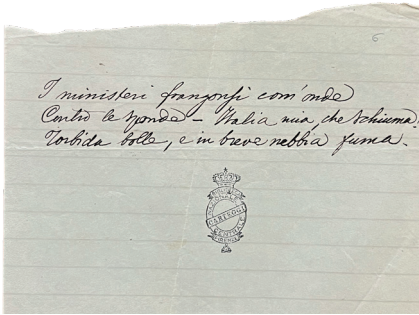 6
I ministeri frangonsi com'onde
Contro le sponde – Italia mia, che schiuma.
Torbida bolle, e in breve nebbia fuma.
CARTEGGI
CENTRALE
FIRENZE